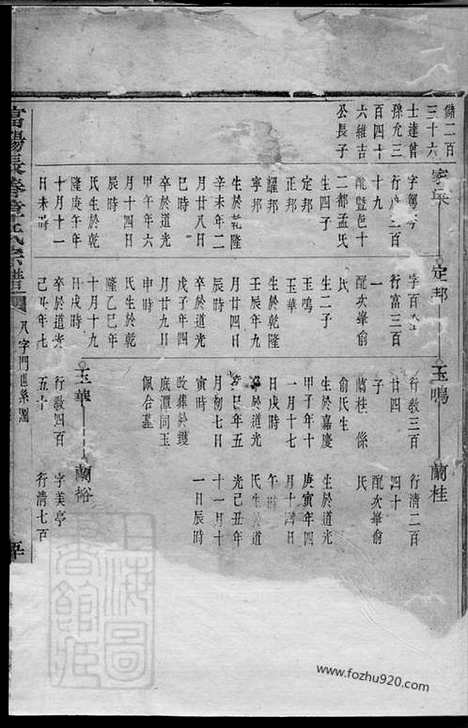 士達曾
孫允三
百四十
六維吉
公長子
字寧岑
十九
配豎邑十
二都孟氏
生四子
定邦
正邦
耀邦
寧邦
生於乾隆
辛未年二
月廿八日
巳時
卒於道光
甲午年六
月十四日
辰時
氏生於乾
隆庚午年
十月十一
日未時
定邦
行富三百
一
配次峯俞
氏
生二子
玉鳴
玉華
生於乾隆
壬辰年九
月廿四日
卒於道光
戊子年四
月廿九日
申時
氏生於乾
隆乙巳年
十月十九
日戌時
卒於道光
玉鳴
行敎三百
廿四
配次峯俞
子
蘭桂
俞氏生
生於嘉慶
甲子年十
一月十七
日戌時
卒於道光
癸巳年五
月初七日
寅時
庭潭同玉
佩合墓
玉華
行敎四百
五十
蘭桂
行清二百
四十
配次峯俞
氏
生於道光
庚寅年四
月十四日
午時
光己丑年
十一月十
一日辰時
蘭裕
字美亭
行清七百
八字門世系圖
www.fozhu920.com